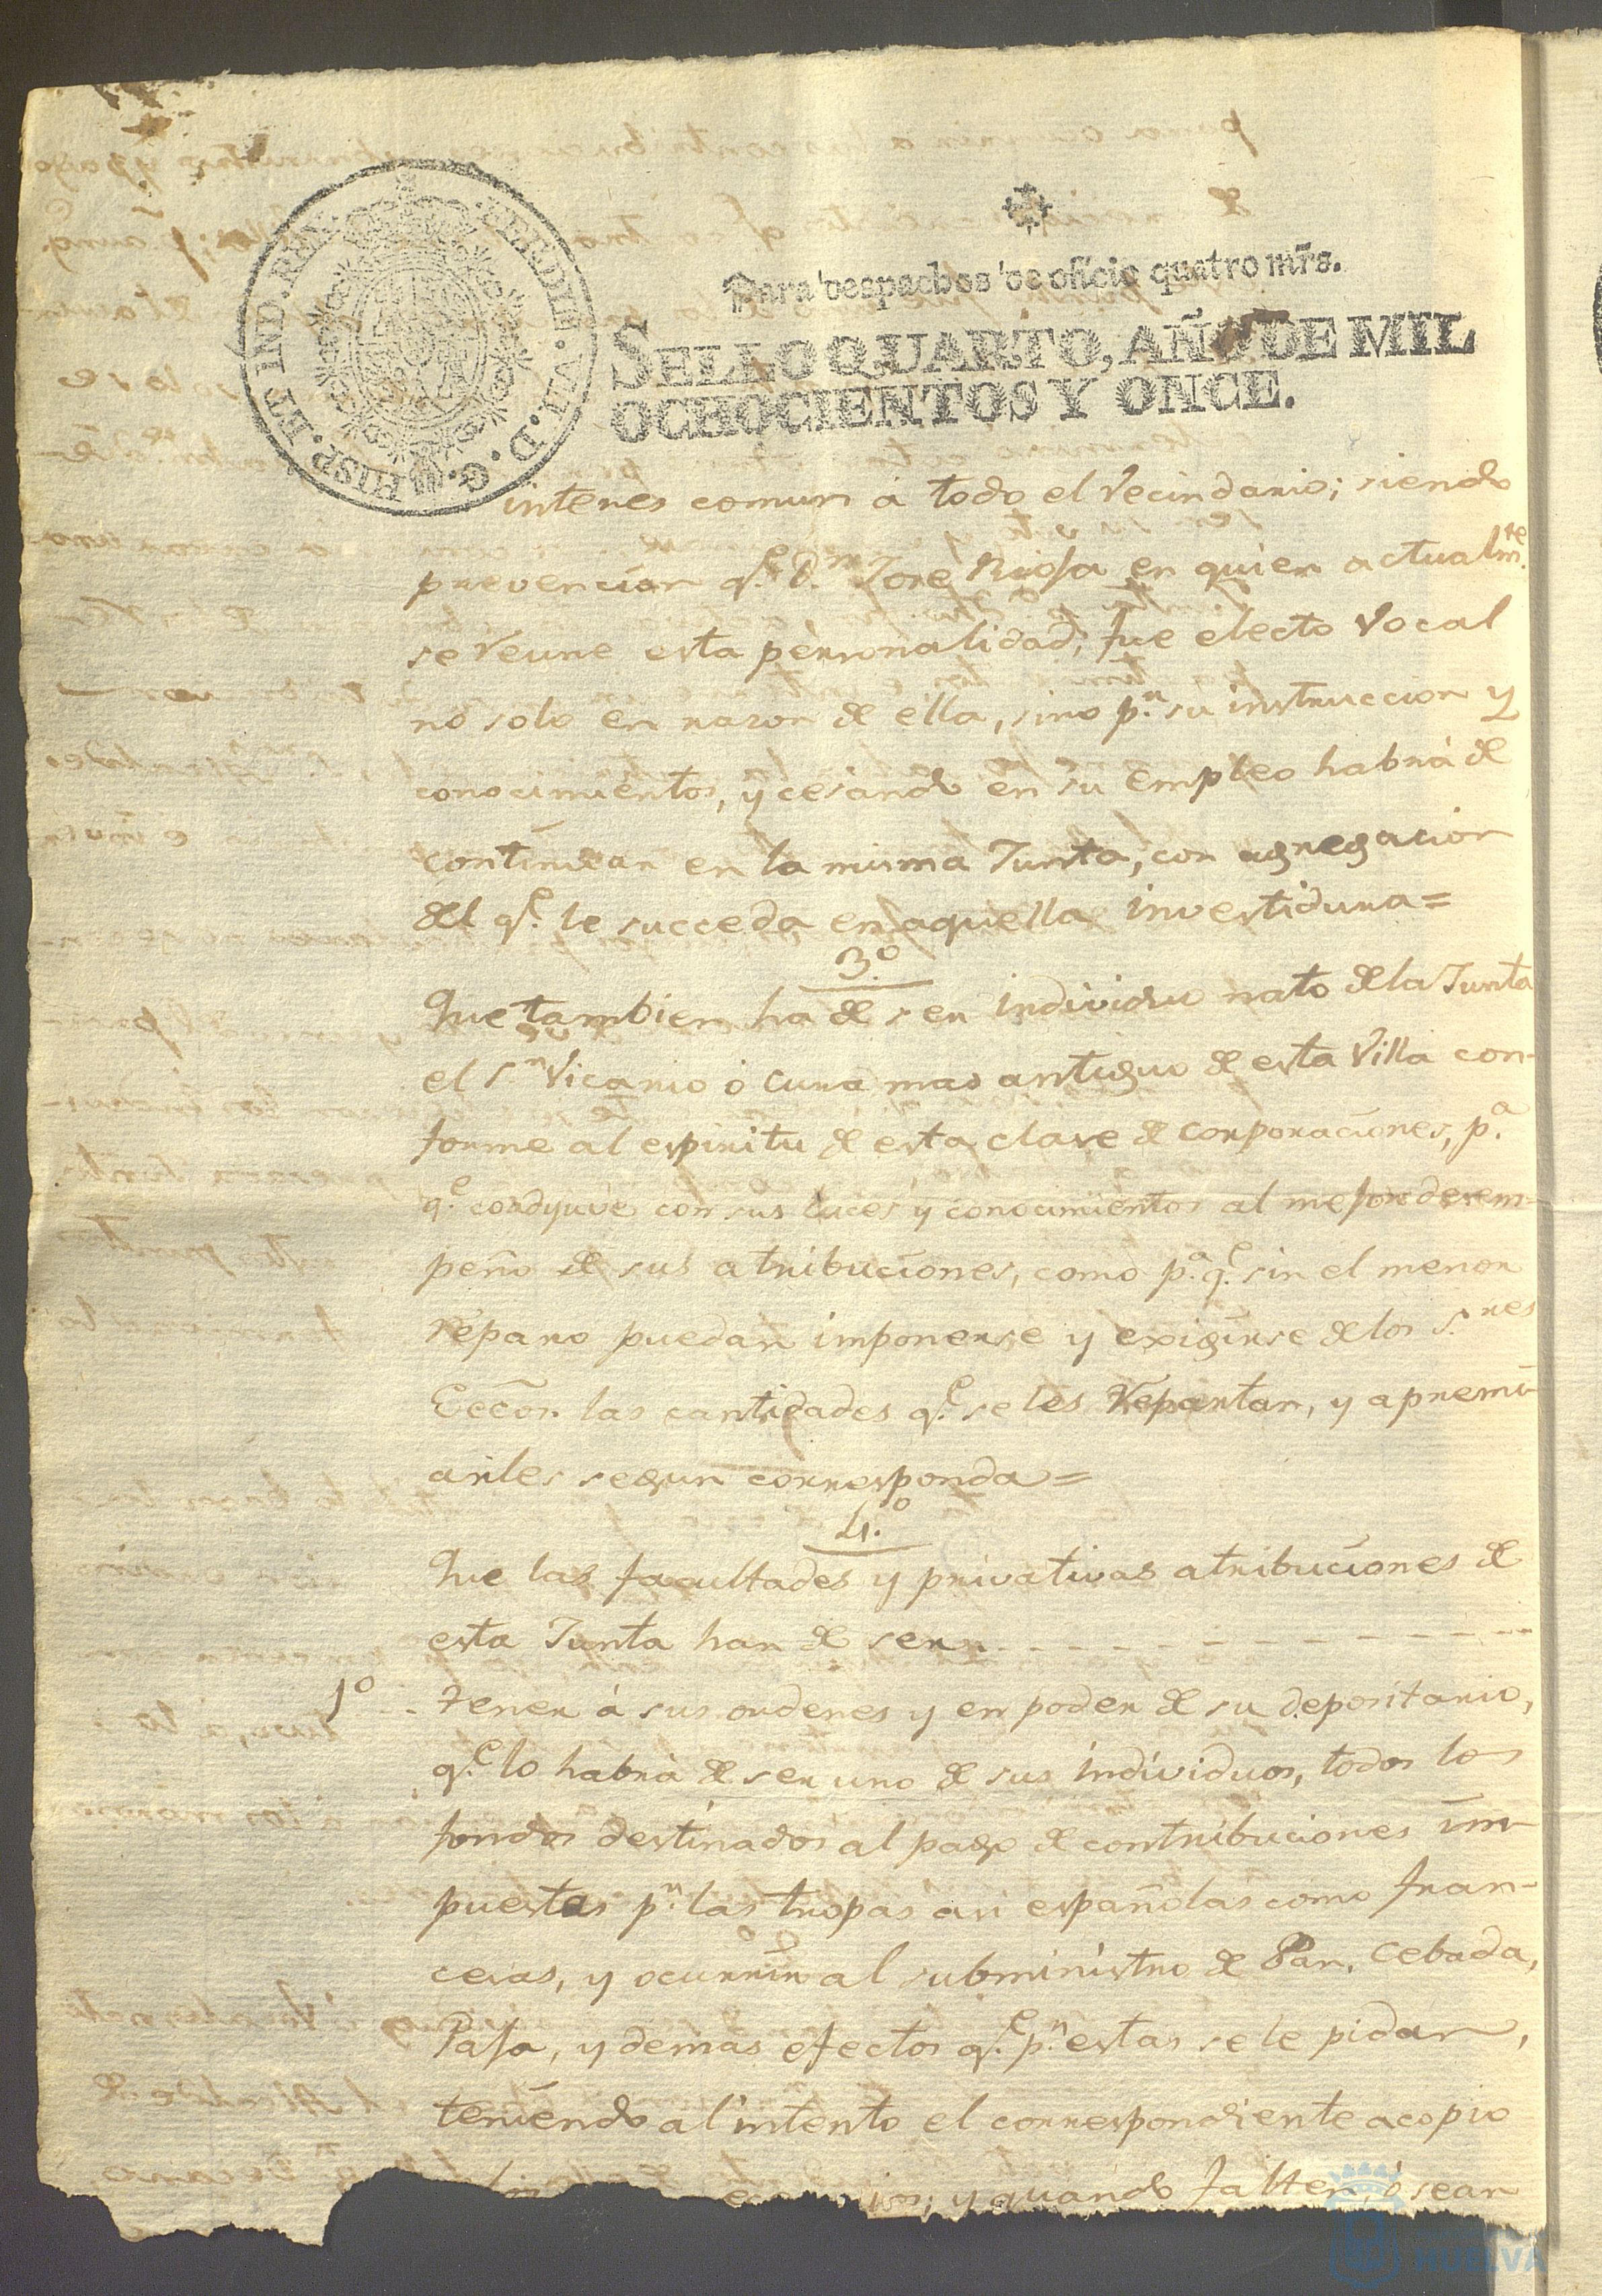 FERDIN. VII. D. G. HISP. ET IND. REX.
Para despachos de oficio quatro mrs.
SELLO QUARTO, AÑO DE MIL
OCHOCIENTOS Y ONCE.
interes comun á todo el vecindario; siendo
prevencion q.e D.n Jose Riosa en quien actualm.te
se reune esta personalidad, fue electo vocal
no solo en razon de ella, sino p.r su instruccion y
conocimientos, y cesando en su empleo habrá de
continuar en la misma Junta, con agregacion
del q.e le succeda en aquella investidura=
3.o
Que tambien ha de ser individuo nato de la Junta
el S.r Vicario ó Cura mas antiguo de esta Villa con-
forme al espiritu de esta clase de corporaciones, p.a
q.e coadyuve con sus luces y conocimientos al mejor desem-
peño de sus atribuciones, como p.a q.e sin el menor
reparo puedan imponerse y exigirse de los S.res
Eccos. las cantidades q.e se les repartan, y apremi-
arles segun corresponda=
4.o
Que las facultades y privativas atribuciones de
esta Junta han de ser
1o. Tener á sus ordenes y en poder de su depositario,
q.e lo habrá de ser uno de sus individuos, todos los
fondos destinados al pago de contribuciones im-
puestas p.r las tropas asi españolas como fran-
cesas, y ocurrir al subministro de Pan, Cebada,
Paja, y demas efectos q.e p.r estas se le pidan,
teniendo al intento el correspondiente acopio
y quando falten ó sean
HUELVA